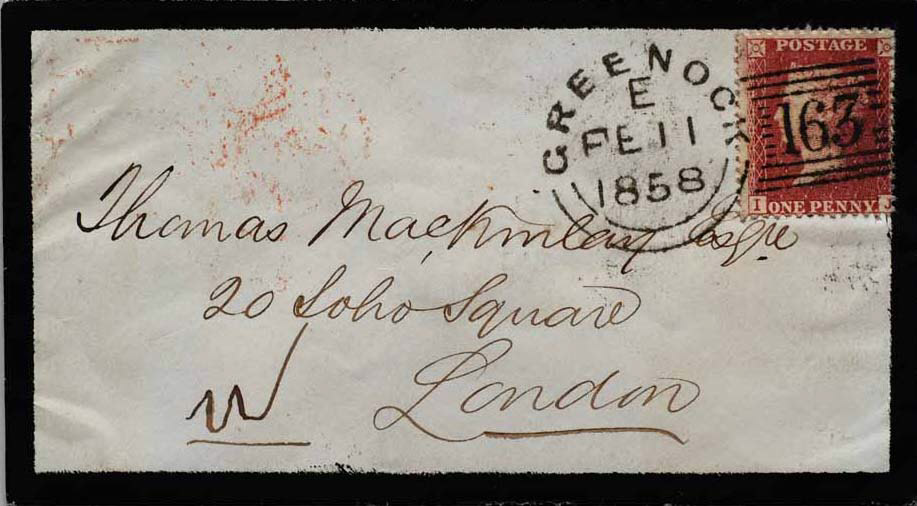 GREENOCK
E
FE 11
1858
POSTAGE
163
I ONE PENNY J
Thomas Mackinlay Esqre
20 Soho Square
London
W